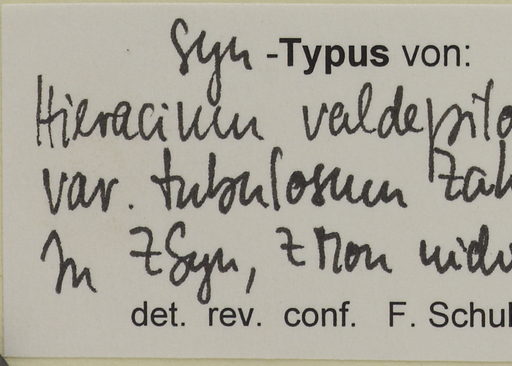 Syn -Typus von:
Hieracium valdepilo
var. tubulosum Zah
In ZSyn, ZMon
det. rev. conf. F. Schul